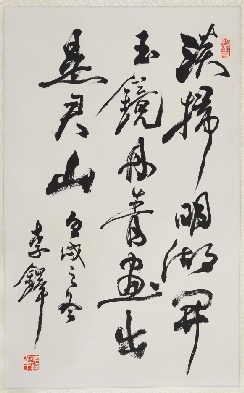 淡掃明湖開
玉鏡丹青畫出
是君山 戌之冬
李鐸